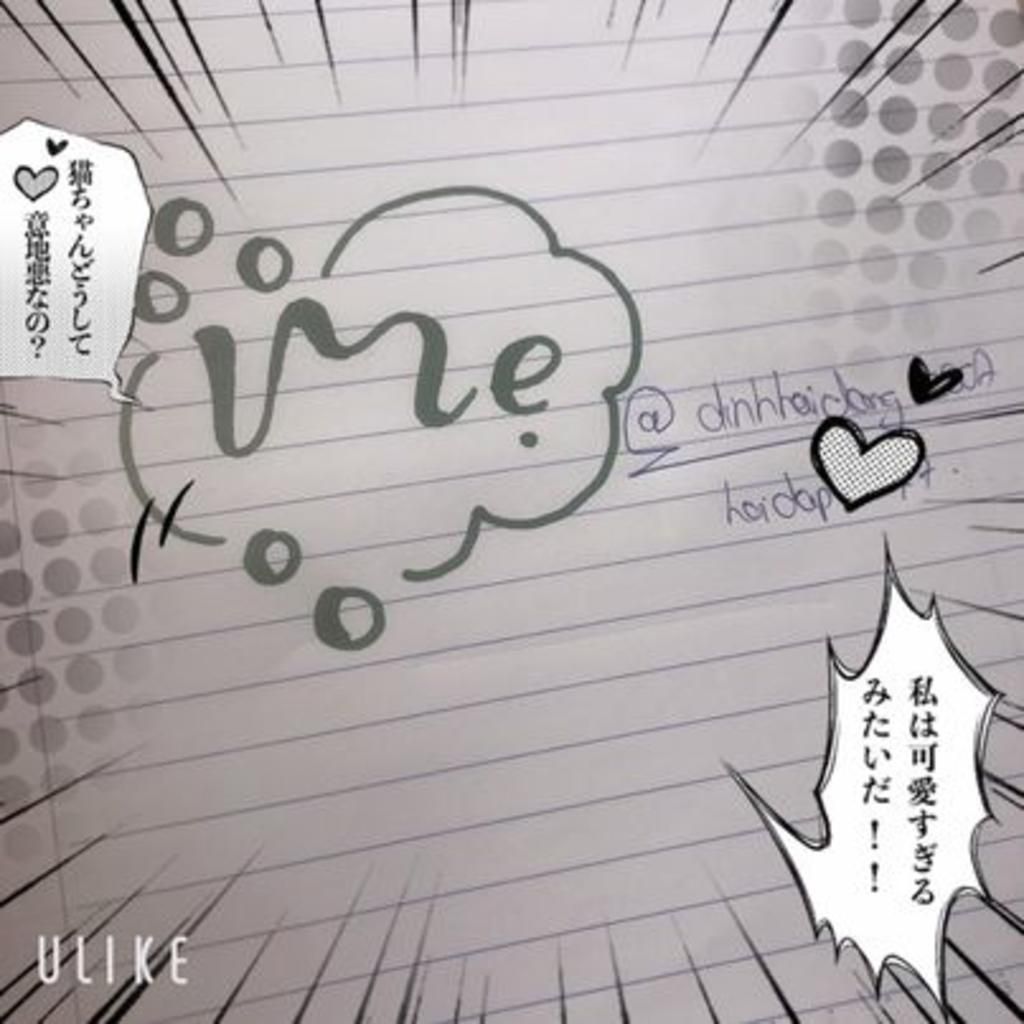 猫ちゃんどうして
意地悪なの？
Mẹ
@ dinhhaidang
私は可愛すぎる
みたいだ！！
ULIKE